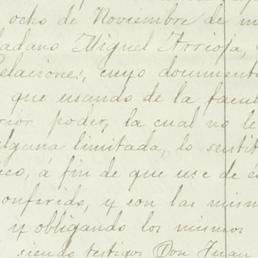 ocho de Noviembre de m
dadano Miguel Arrioja,
Relaciones, cuyo document
que usando de la facul
rior poder, la cual no le
alguna limitada, lo sustit
eco, á fin de que use de e
onferido, y son las mism
y obligando los mismos
siendo testigos Don Juan